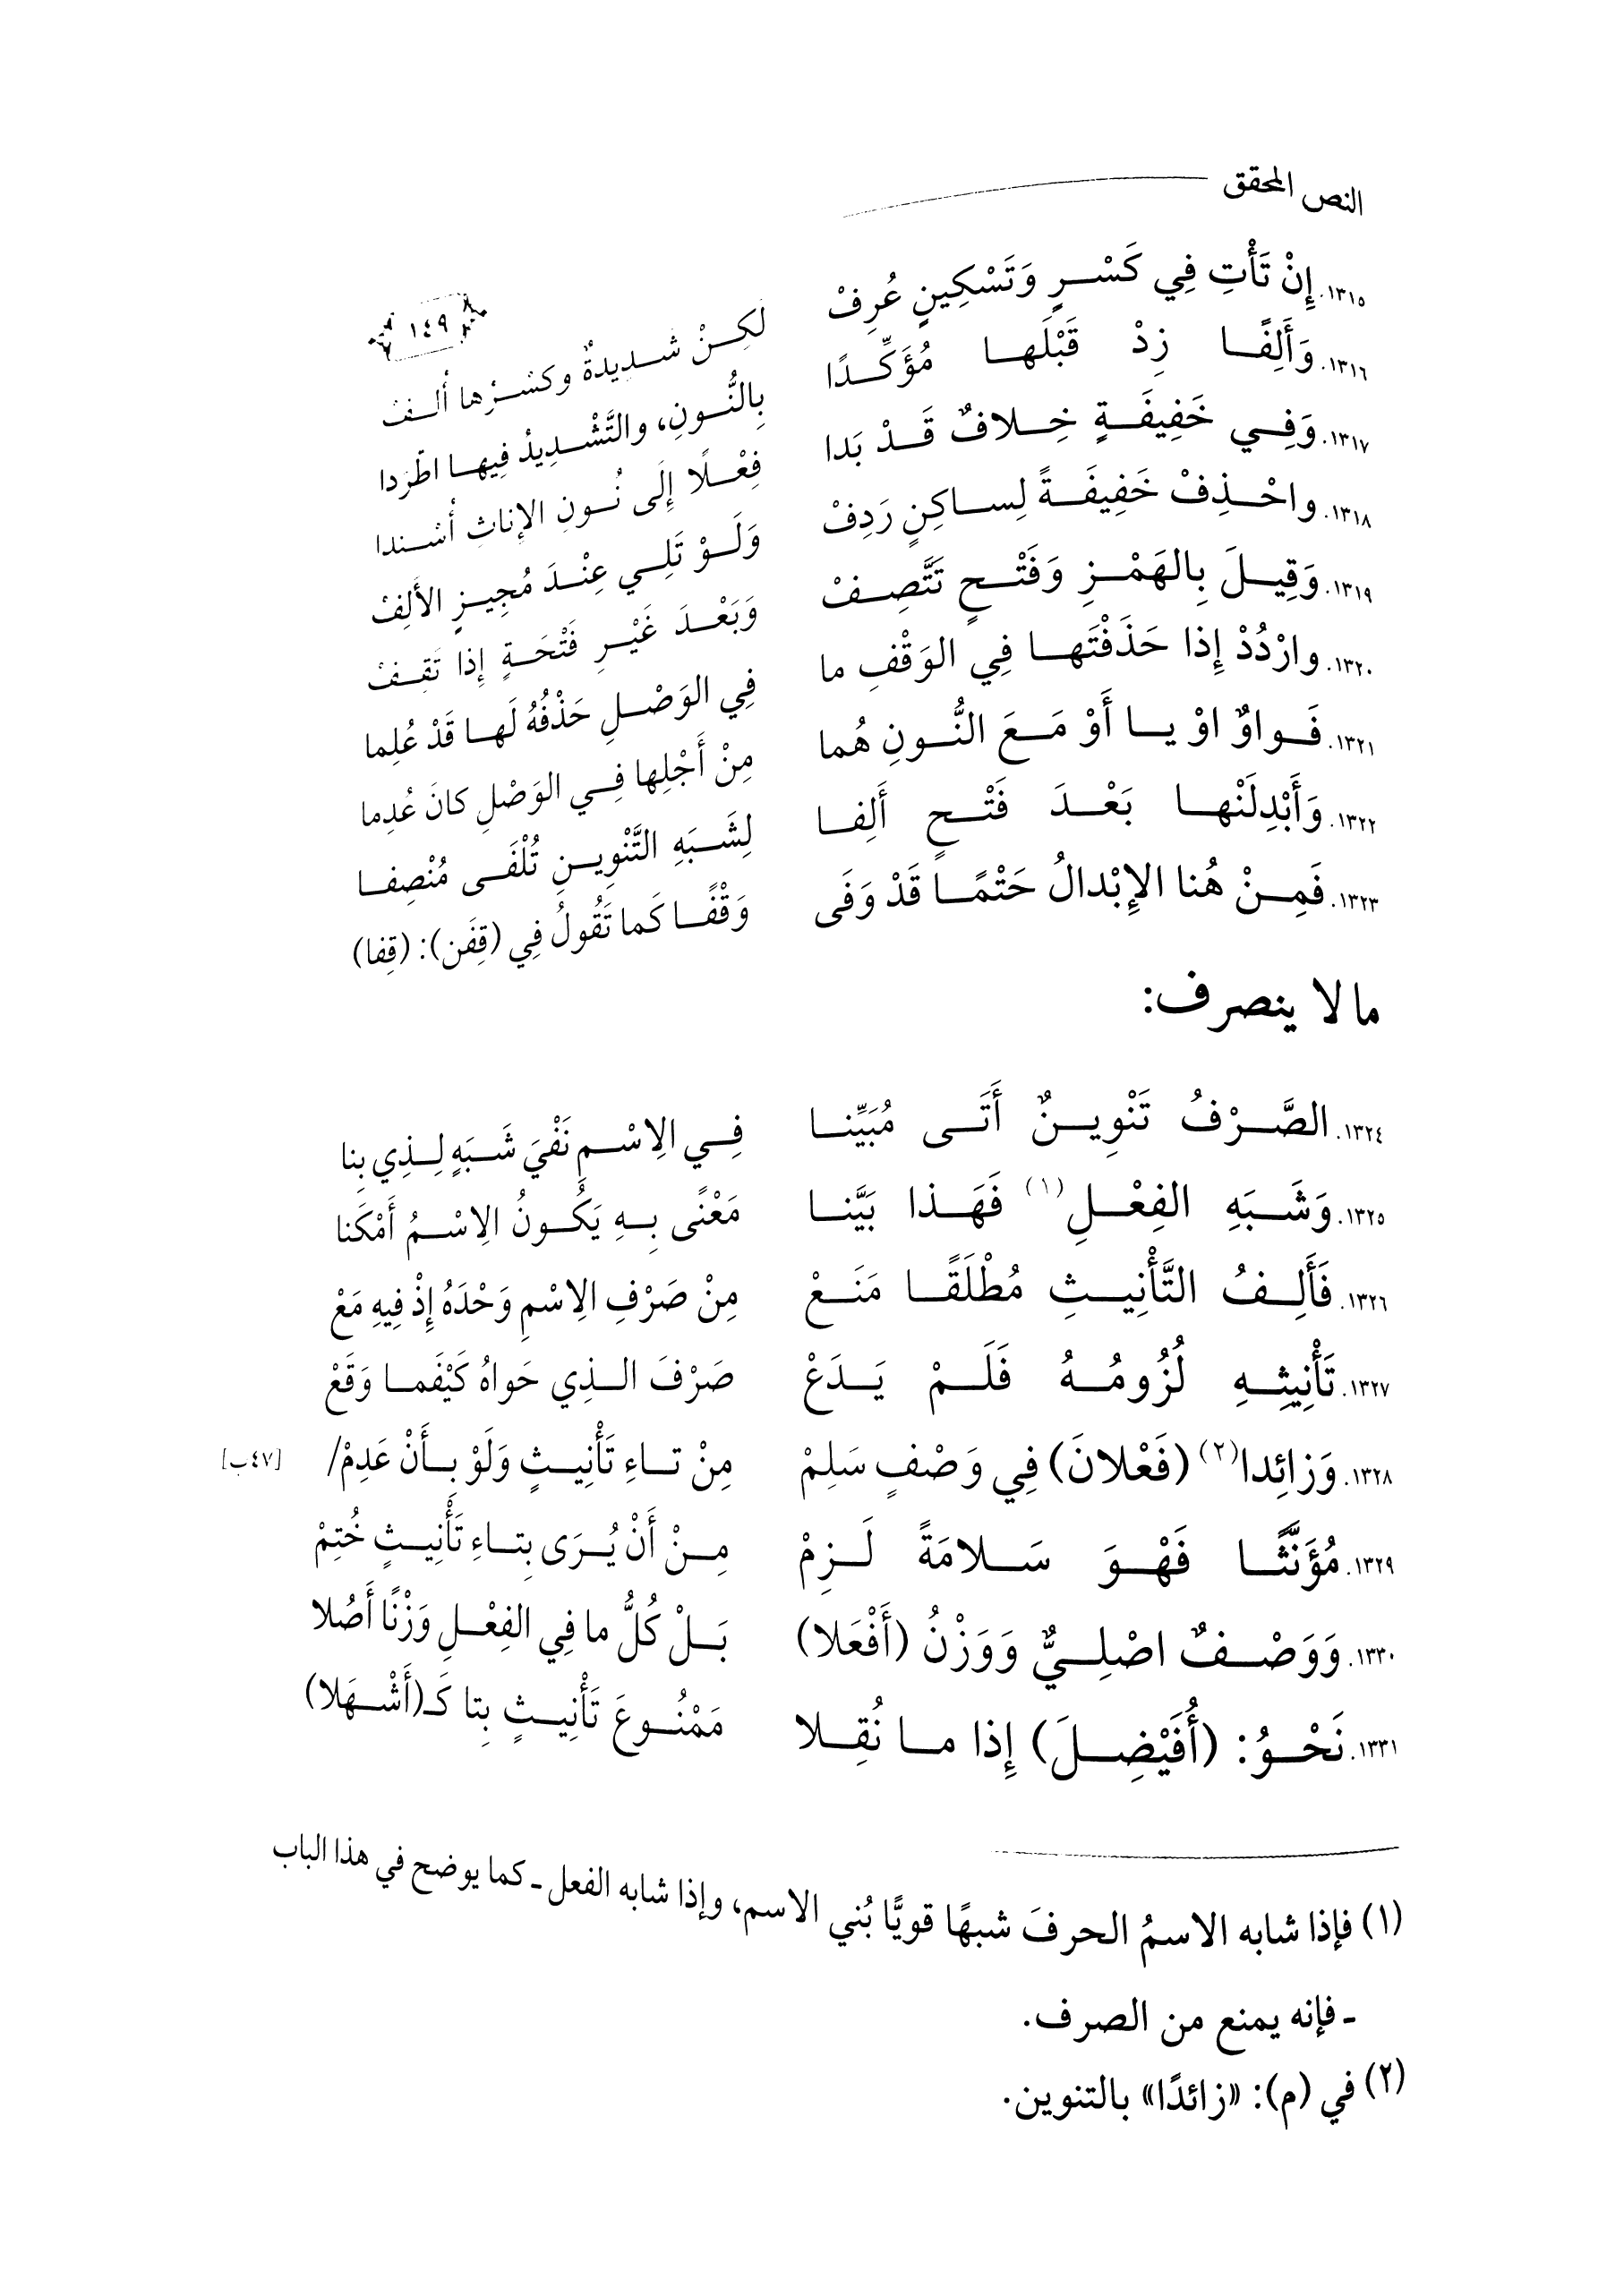 النص المحقق
١٤٩
١٣١٥. إِنْ تَأْتِ فِي كَسْرٍ وَتَسْكِينٍ عُرِفْ لَكِنْ شَدِيدةٌ وكَسْرُها أُلِفْ
١٣١٦. وَأَلِفًا زِدْ قَبْلَها مُؤَكِّدًا فِعْلًا إِلَى نُونِ الإِناثِ أُسْنِدا
١٣١٧. وَفِي خَفِيفَةٍ خِلافٌ قَدْ بَدا بِالنُّونِ، والتَّشْدِيدُ فِيها اطّرَدا
١٣١٨. واحْذِفْ خَفِيفَةً لِساكِنٍ رَدِفْ وَلَوْ تَلِي عِنْدَ مُجِيزٍ الأَلِفْ
١٣١٩. وَقِيلَ بِالهَمْزِ وَفَتْحٍ تَتَّصِفْ وَبَعْدَ غَيْرِ فَتْحَةٍ إِذا تَقِفْ
١٣٢٠. وارْدُدْ إِذا حَذَفْتَها فِي الوَقْفِ ما فِي الوَصْلِ حَذْفُهُ لَها قَدْ عُلِما
١٣٢١. فَواوٌ اوْ يا أَوْ مَعَ النُّونِ هُما مِنْ أَجْلِها فِي الوَصْلِ كانَ عُدِما
١٣٢٢. وَأَبْدِلَنْها بَعْدَ فَتْحٍ أَلِفا لِشَبَهِ التَّنْوِينِ تُلْفَى مُنْصِفا
١٣٢٣. فَمِنْ هُنا الإِبْدالُ حَتْمًا قَدْ وَفَى وَقْفًا كَما تَقُولُ فِي (قِفَن): (قِفا)
ما لا ينصرف:
١٣٢٤. الصَّرْفُ تَنْوِينٌ أَتَى مُبَيِّنا فِي الِاسْمِ نَفْيَ شَبَهٍ لِذِي بِنا
١٣٢٥. وَشَبَهِ الفِعْلِ(١) فَهَذا بَيَّنا مَعْنًى بِهِ يَكُونُ الِاسْمُ أَمْكَنا
١٣٢٦. فَأَلِفُ التَّأْنِيثِ مُطْلَقًا مَنَعْ مِنْ صَرْفِ الِاسْمِ وَحْدَهُ إِذْ فِيهِ مَعْ
١٣٢٧. تَأْنِيثِهِ لُزُومُهُ فَلَمْ يَدَعْ صَرْفَ الذِي حَواهُ كَيْفَما وَقَعْ
١٣٢٨. وَزائِدا(٢) (فَعْلانَ) فِي وَصْفٍ سَلِمْ مِنْ تاءِ تَأْنِيثٍ وَلَوْ بِأَنْ عَدِمْ/ [٤٧ب]
١٣٢٩. مُؤَنَّثًا فَهْوَ سَلامَةً لَزِمْ مِنْ أَنْ يُرَى بِتاءِ تَأْنِيثٍ خُتِمْ
١٣٣٠. وَوَصْفٌ اصْلِيٌّ وَوَزْنُ (أَفْعَلا) بَلْ كُلُّ ما فِي الفِعْلِ وَزْنًا أَصُلا
١٣٣١. نَحْوُ: (أُفَيْضِلَ) إِذا ما نُقِلا مَمْنُوعَ تَأْنِيثٍ بِتا كَـ(أَشْهَلا)
(١) فإذا شابه الاسمُ الحرفَ شبهًا قويًّا بُني الاسم، وإذا شابه الفعل ـ كما يوضح في هذا الباب
ـ فإنه يمنع من الصرف.
(٢) في (م): «زائدًا» بالتنوين.